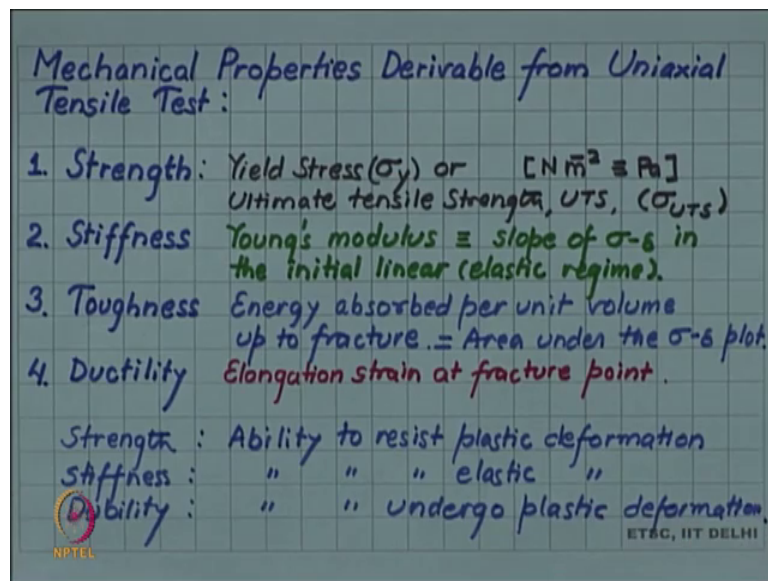 Mechanical Properties Derivable from Uniaxial
Tensile Test:
1. Strength: Yield Stress (σy) or [N m̄² ≡ Pa]
Ultimate tensile Strength, UTS, (σUTS)
2. Stiffness Young's modulus ≡ slope of σ-ϵ in
the initial linear (elastic regime).
3. Toughness Energy absorbed per unit volume
up to fracture. = Area under the σ-ϵ plot.
4. Ductility Elongation strain at fracture point.
Strength: Ability to resist plastic deformation
Stiffness: " " " elastic "
Ductility: " " undergo plastic deformation.
ETSC, IIT DELHI
NPTEL